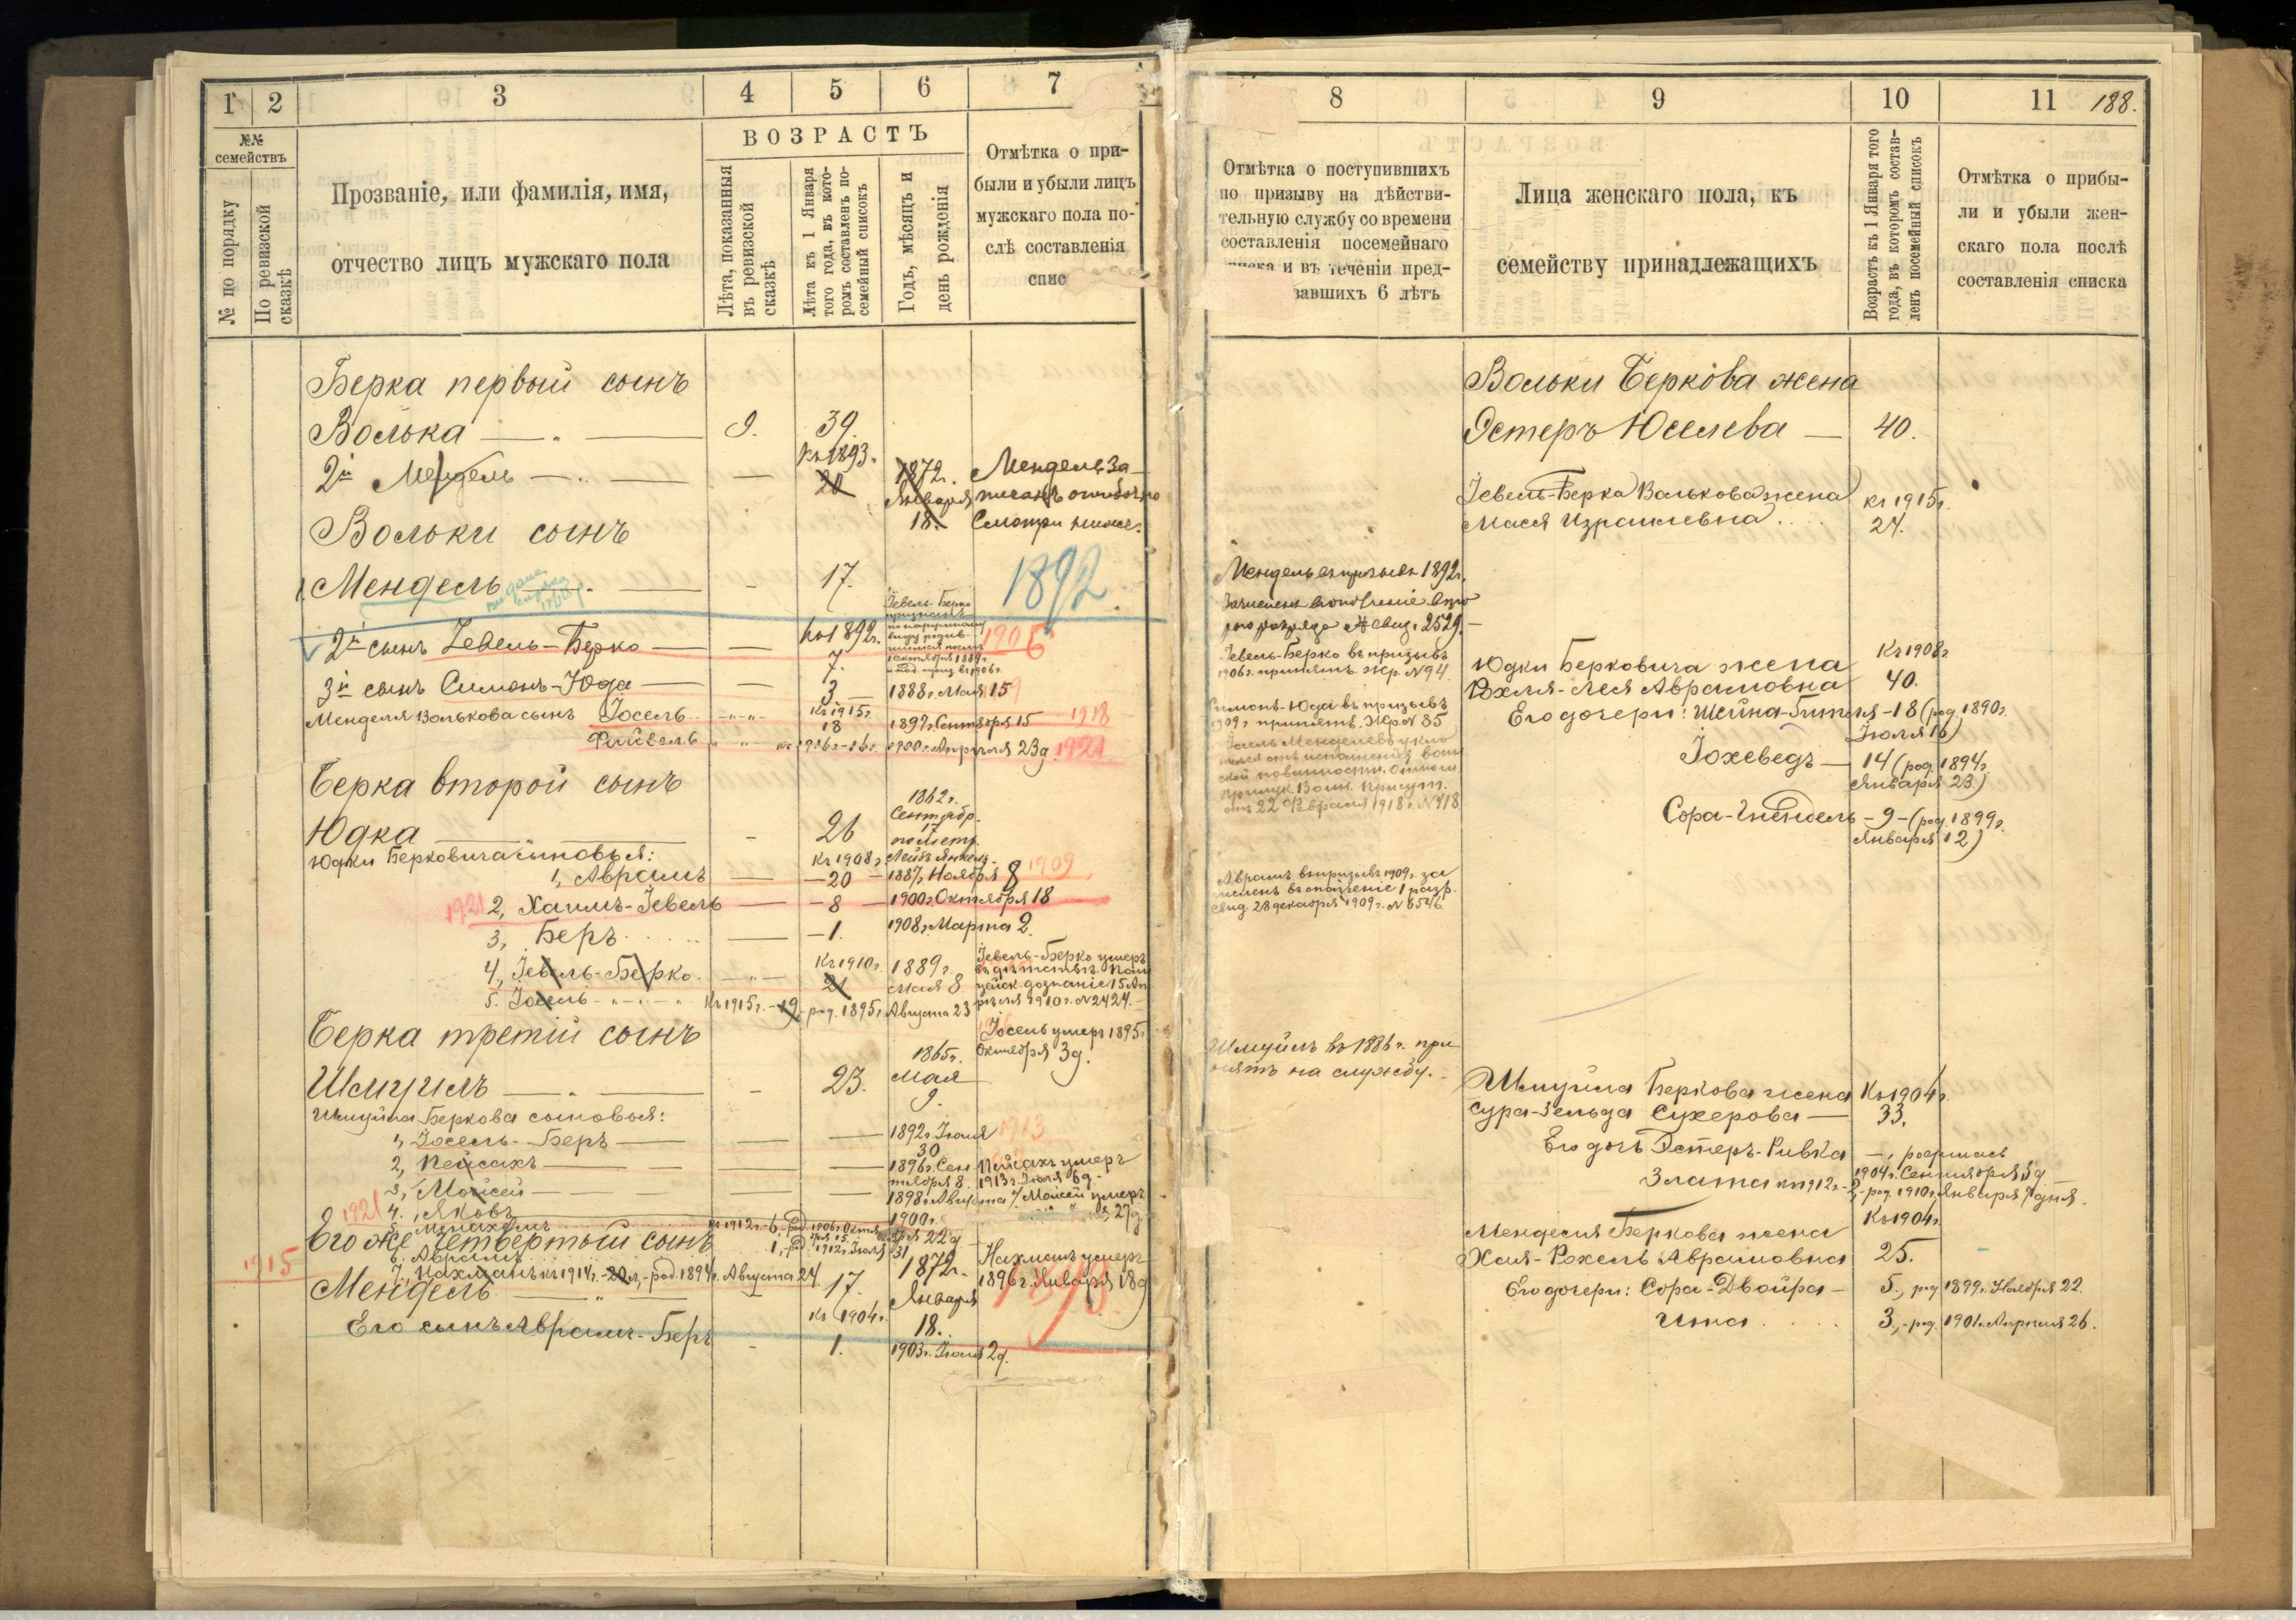 1 2 3 4 5 6 7
№№ семействъ
№ по порядку
По ревизской сказкѣ
Прозваніе, или фамилія, имя,
отчество лицъ мужскаго пола
ВОЗРАСТЪ
Лѣта, показанныя
въ ревизской
сказкѣ
Лѣта къ 1 Января
того года, въ кото-
ромъ составленъ по-
семейный списокъ
Годъ, мѣсяцъ и
день рожденія
Отмѣтка о при-
были и убыли лицъ
мужскаго пола по-
слѣ составленія
спис
Берка первый сынъ
Волька — 9. 39.
къ 1893 г.
2й Мендель — 20 1872 г. Января 18. Мендель за-
писанъ ошибочно
Смотри ниже.
Вольки сынъ
1. Мендель — 17. 1892.
2й сынъ Зевель-Берко — къ 1892 г. 7. 1906
3й сынъ Симонъ-Юда — 3 1888 г. Мая 15
Менделя Волькова сынъ Іосель къ 1915 г. 18 1897 г. Сентября 15 1918
Файвель 1916 г. 1900 г. Апрѣля 23 д. 1921
Берка второй сынъ
Юдка — 26 1862 г. Сентябр. 17
Юдки Берковича сыновья: къ 1908 г.
1, Аврамъ — 20 — 1887 г. Ноября 8 1909
1921 2, Хаимъ-Зевель — 8 — 1900 г. Октября 18
3, Беръ — 1. 1908 г. Марта 2.
4, Зевель-Берко къ 1910 г. 21 1889 г. Мая 8 Зевель-Берко умеръ
въ дѣтствѣ. Поли
цейск. дознаніе 15 Ап
рѣля 1910 г. № 2424.
5. Іосель къ 1915 г. — 19 род. 1895 г. Августа 23
Іосель умеръ 1895 г.
Октября 3 д.
Берка третій сынъ
Шмуилъ — 23. 1865 г. Мая 9.
Шмуйла Беркова сыновья:
1, Іосель-Беръ — 1892 г. Іюля 30 1913
2, Пейсахъ — 1896 г. Сен
тября 8. Пейсахъ умеръ
1913 г. Іюля 6 д.
3, Мойсей — 1898 г. Августа 7 Мойсей умеръ
1921 4., Яковъ 1900 г.
5. Менахемъ къ 1912 г. — 6, род. 1906 г. Октя
бря 15.
Его же четвертый сынъ
6. Аврамъ 1, род. 1912 г. Іюля 31
1915 7. Нахманъ къ 1914 г. — 20 л, род. 1894 г. Августа 24. Нахманъ умеръ
1896 г. Января 18 д
Мендель — 17. 1872 г. Января 18.
Его сынъ Аврамъ-Беръ къ 1904 г. 1. 1903 г. Іюля 2 д.
8 9 10 11 188.
Отмѣтка о поступившихъ
по призыву на дѣйстви-
тельную службу со времени
составленія посемейнаго
и въ теченіи пред-
завшихъ 6 лѣтъ
Лица женскаго пола, къ
семейству принадлежащихъ
Возрастъ къ 1 Января того
года, въ которомъ состав-
ленъ посемейный списокъ
Отмѣтка о прибы-
ли и убыли жен-
скаго пола послѣ
составленія списка
Вольки Беркова жена
Эстеръ Юселева — 40.
Зевель-Берка Валькова жена
Мася Израилевна къ 1915 г. 24.
Мендель въ призывъ 1892 г.
зачисленъ въ ополченіе
разряда свид. 2529.
Зевель-Берко въ призывъ
1906 г. принятъ. жр. № 94.
Юдки Берковича жена къ 1908 г
Рохля-Лея Аврамовна 40.
Симонъ-Юда въ призывъ
1909 г. принятъ. Жр. № 85
Его дочери: Шейна-Гитля — 18 (род. 1890 г.
Іюля 16)
Іохеведъ — 14 (род. 1894 г.
Января 23)
Іосель Менделевъ укло
нился отъ исполненія воин
ской повинности.
отъ 22 Февраля 1918 г. № 418
Сора-Гнендель — 9 — (род. 1899 г.
Января 12)
Аврамъ въ призывъ 1909 г. за
численъ въ ополченіе 1 разр.
свид. 28 декабря 1909 г. № 6546
Шмуйлъ въ 1886 г. при
нятъ на службу.
Шмуйла Беркова жена къ 1904 г.
Сура-Зельда Сухерова — 33.
Его дочь Эстеръ-Ривка —, родилась
1904 г. Сентября 3 д
Злата къ 1912 г. — 2, род. 1910 г. Января 7 дня.
Менделя Беркова жена къ 1904 г.
Хая-Рохель Аврамовна 25.
Его дочери: Сора-Двойра — 5., род 1899 г. Ноября 22.
Ита 3., род. 1901 г. Апрѣля 26.